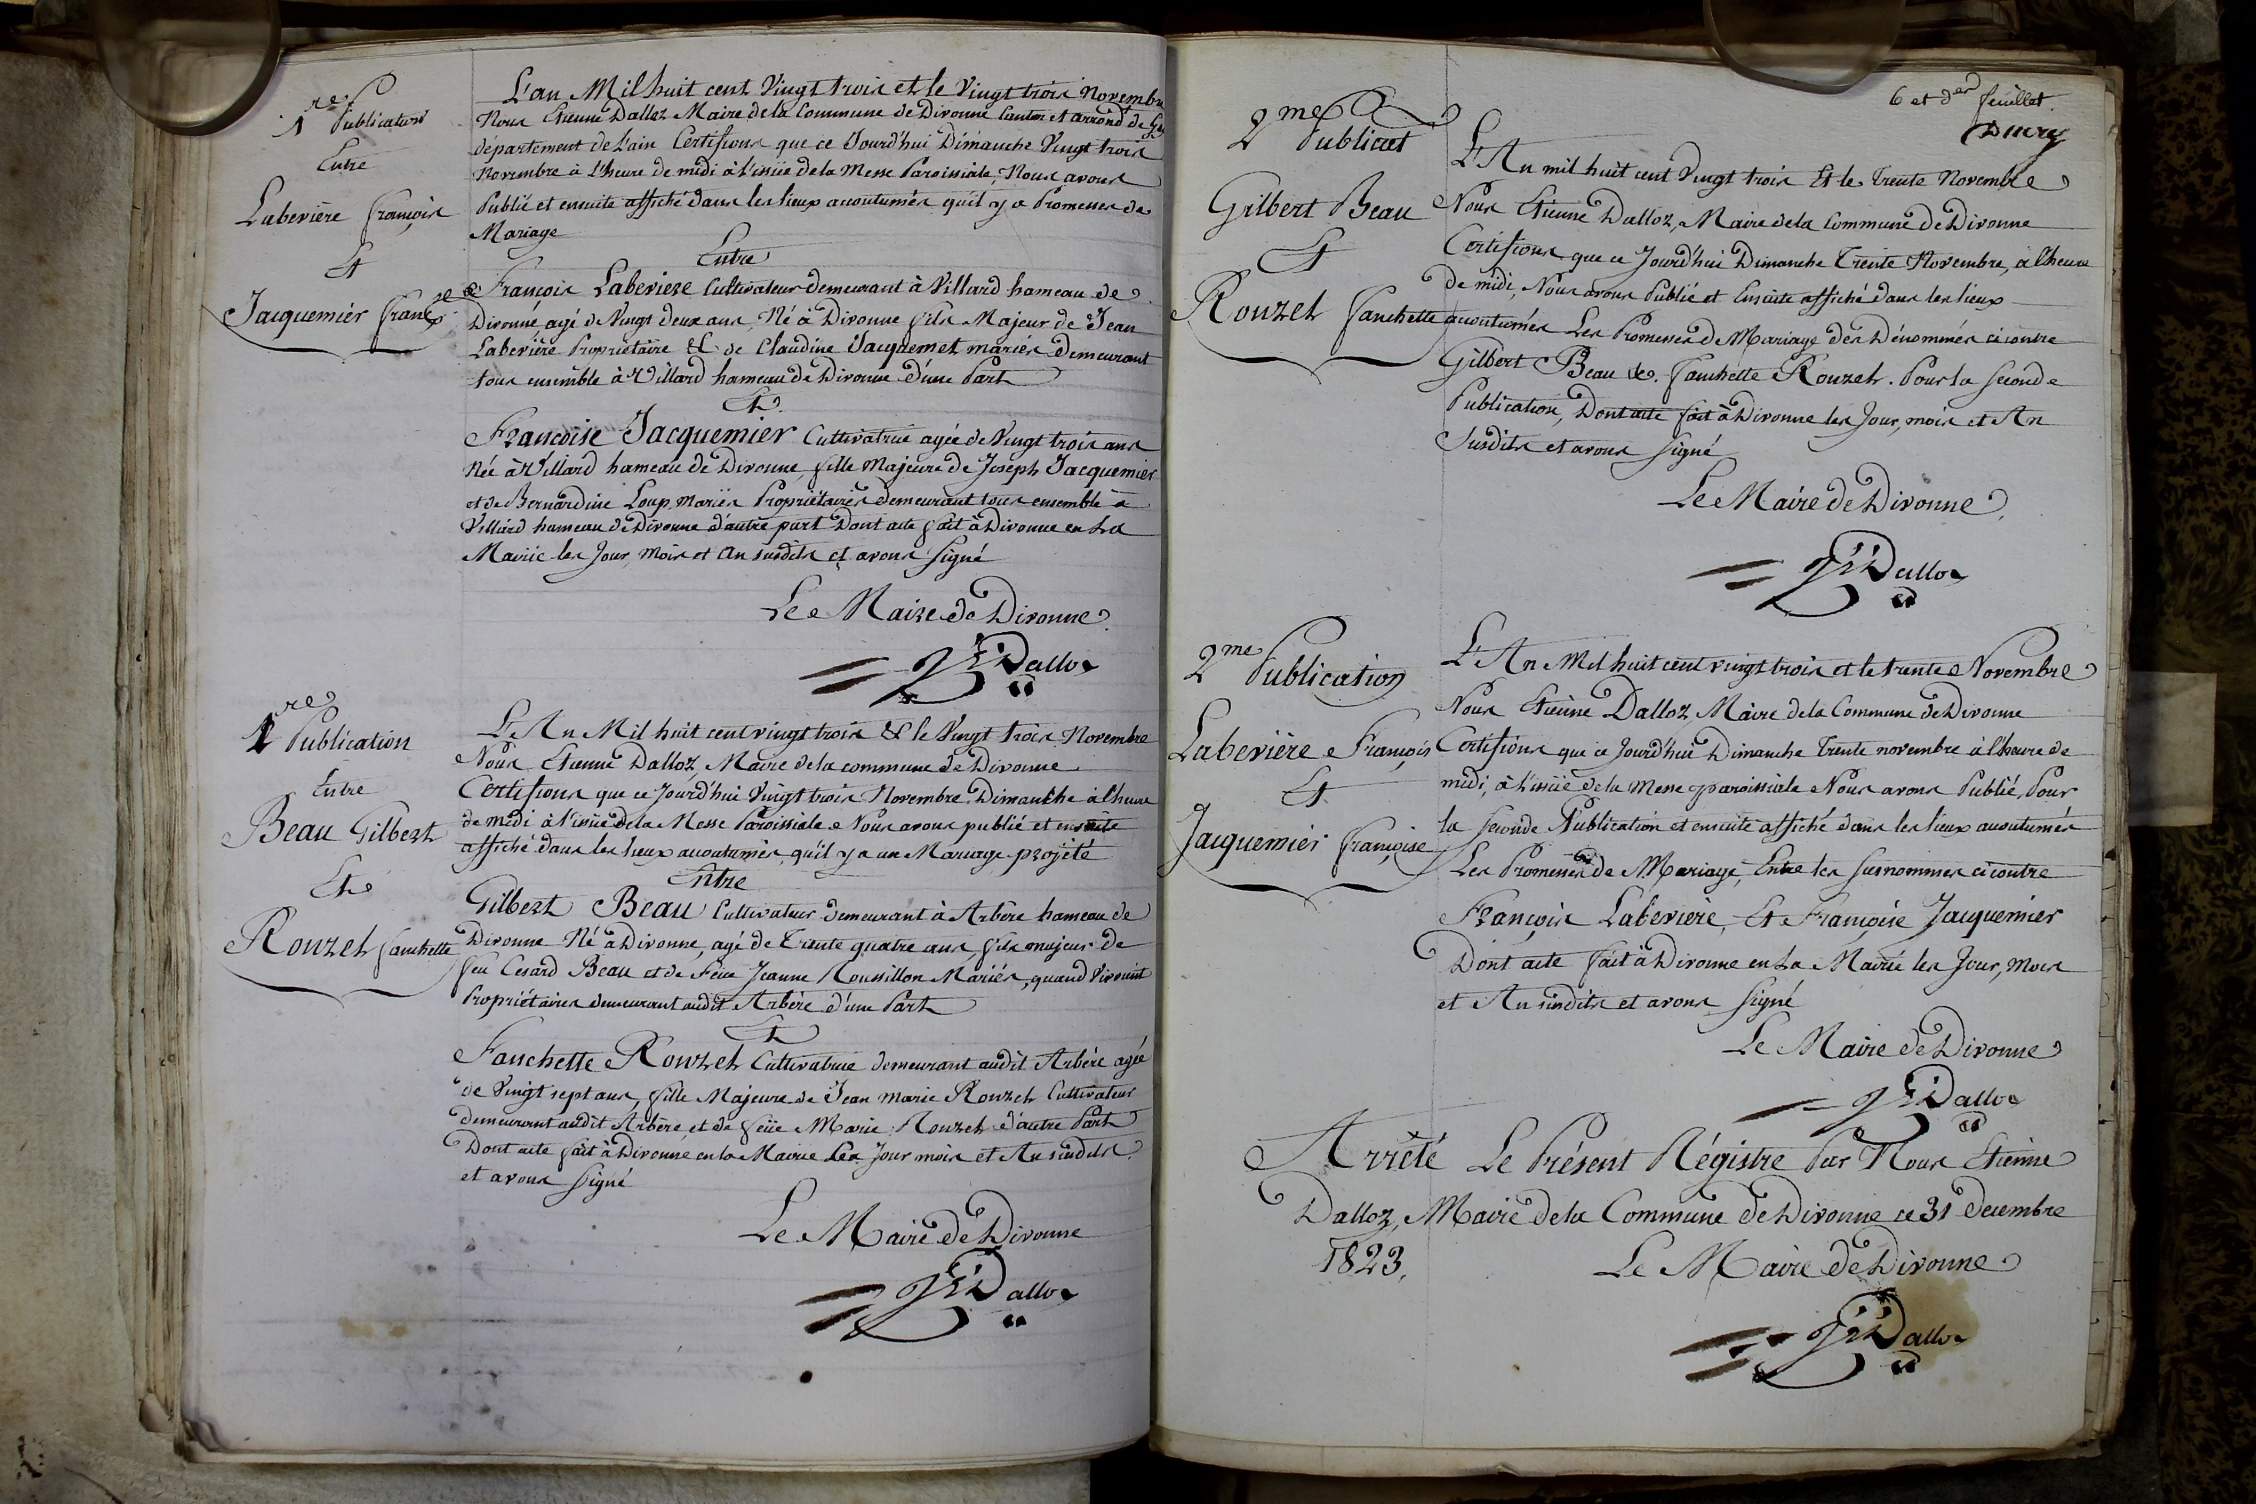 1re Publication
Entre
Laberière François
Et
Jacquemier Françse
L'an Mil huit cent Vingt trois et le Vingt trois Novembre
Nous Etienne Dalloz Maire de la Commune de Divonne Canton et arrond' de Gex
département de L'ain Certifions que ce Jourd'hui Dimanche Vingt trois
Novembre à L'heure de midi à l'issüe de la Messe Paroissiale, Nous avons
Publié et ensuite affiché dans les lieux acoutumés qu'il y a Promesses de
Mariage
Entre
François Laberiere Cultivateur demeurant à Villard hameau de
Divonne agé de Vingt deux ans, Né à Divonne fils Majeur de Jean
Laberière Propriétaire & de Claudine Jacquemet mariés demeurant
tous ensemble à Villard hameau de Divonne d'une Part
Et
Françoise Jacquemier Cultivatrice agée de Vingt trois ans
Née à Villard hameau de Divonne fille Majeure de Joseph Jacquemier
et de Bernardine Loup mariés Propriétaires demeurant tous ensemble à
Villard hameau de Divonne d'autre part Dont acte fait à Divonne en La
Mairie les Jour, Mois et an susdits et avons Signé
Le Maire de Divonne
Dalloz
1re Publication
Entre
Beau Gilbert
Et
Rouzet fanchette
L'An Mil huit cent vingt trois & le Vingt trois Novembre
Nous Etienne Dalloz, Maire de la commune de Divonne
Certifions que ce Jourd'hui Vingt trois Novembre Dimanche à l'heure
de midi à l'issüe de la Messe Paroissiale Nous avons publié et ensuite
affiché dans les lieux acoutumés, qu'il y a un Mariage projété
Entre
Gilbert Beau Cultivateur demeurant à Arbère hameau de
Divonne Né à Divonne, agé de Trente quatre ans, fils majeur de
feu Cesard Beau et de Feue Jeanne Roussillon Mariés, quand Vivoint
Propriétaires demeurant audit Arbère d'une Part
Et
Fanchette Rouzet Cultivatrice demeurant audit Arbère agée
de Vingt sept ans, fille Majeure de Jean Marie Rouzet Cultivateur
demeurant audit Arbère et de feüe Marie Rouzet d'autre Part
Dont acte fait à Divonne en la Mairie Les Jour mois et An susdits
et avons Signé
Le Maire de Divonne
Dalloz
6 et der feuillet.
2me Publicat
Gilbert Beau
Et
Rouzet fanchette
L'An mil huit cent Vingt trois Et le Trente Novembre
Nous Etienne Dalloz, Maire de la Commune de Divonne
Certifions que ce Jourd'hui Dimanche Trente Novembre, à l'heure
de midi, Nous avons Publié et Ensuite affiché dans les lieux
acoutumés Les Promesses de Mariage des Dénommés ci contre
Gilbert Beau &. fanchette Rouzet. Pour la seconde
Publication, Dont acte fait à Divonne les Jour, mois et An
Susdits et avons Signé
Le Maire de Divonne
Dalloz
2me Publication
Laberière François
Et
Jacquemier Françoise
L'An Mil huit cent vingt trois et le trente Novembre
Nous Etienne Dalloz, Maire de la Commune de Divonne
Certifions que ce Jourd'hui Dimanche Trente novembre à l'heure de
midi, à l'issüe de la Messe paroissiale Nous avons Publié, Pour
la seconde Publication et ensuite affiché dans les lieux acoutumés
Les Promesses de Mariage, Entre les surnommés ci contre
François Laberiere, Et Françoise Jacquemier
Dont acte fait à Divonne en La Mairie les Jour, Mois
et An susdits et avons Signé
Le Maire de Divonne
Dalloz
Arrêté Le Présent Régistre Par Nous Etienne
Dalloz, Maire de la Commune de Divonne ce 31 décembre
1823.
Le Maire de Divonne
Dalloz